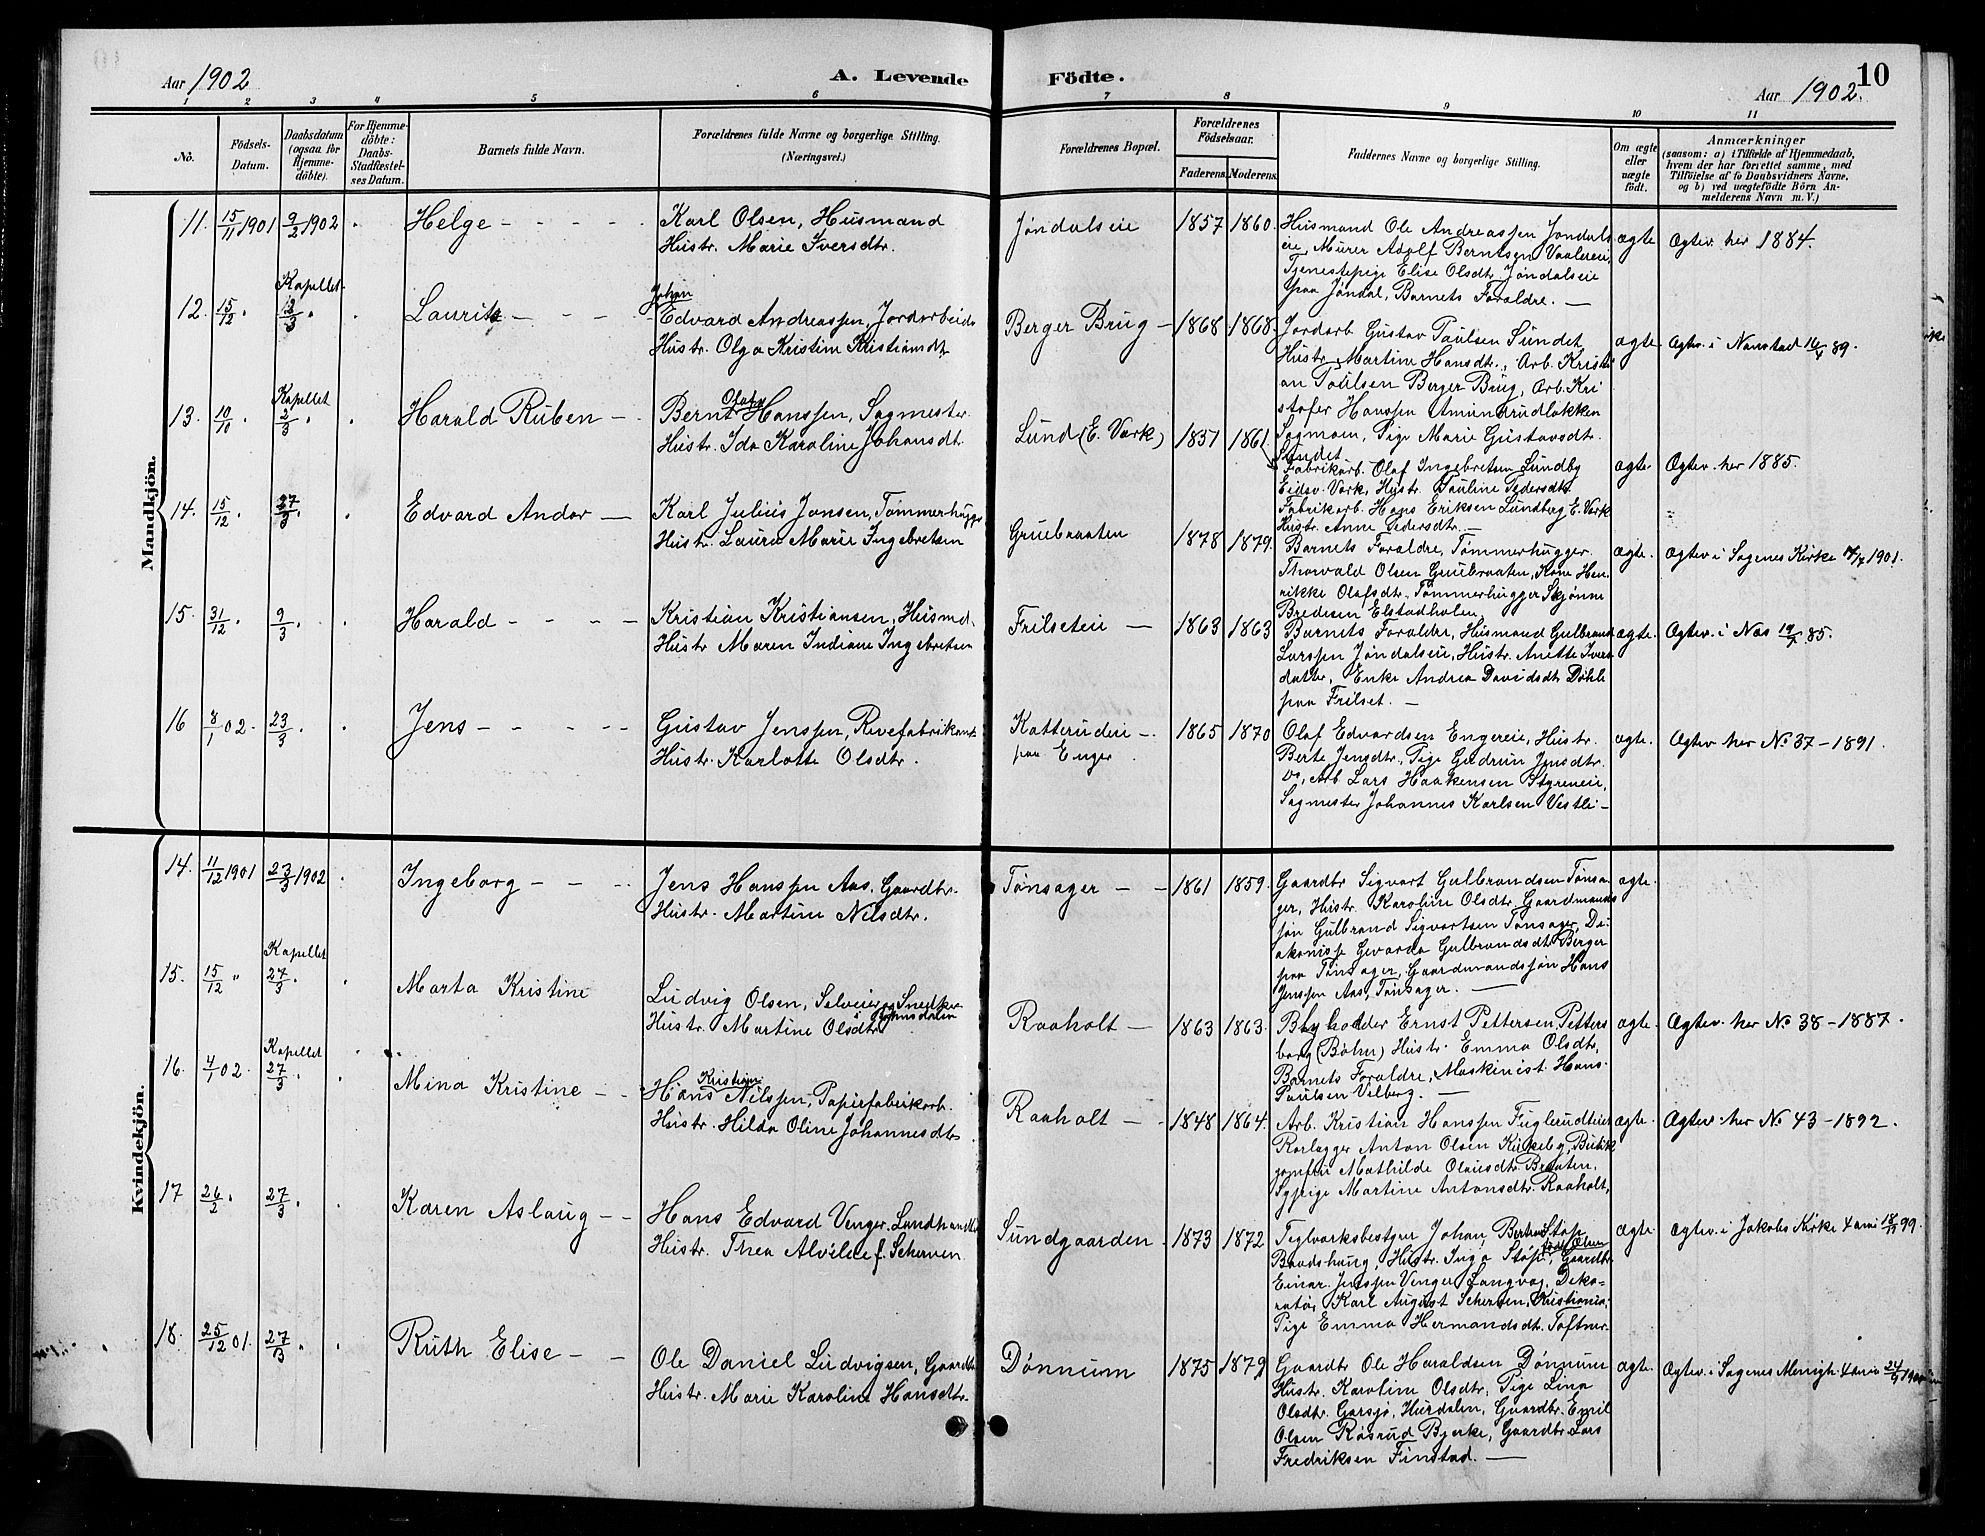 Aar 1902
A. Levende Födte.
Aar 1902.
10
1 2 3 4 5 6 7 8 9 10 11
Nò.
Födsels-Datum.
Daabsdatum (ogsaa för Hjemme-döbte).
For Hjemme-döbte: Daabs-Stadfæstel-ses Datum.
Barnets fulde Navn.
Forældrenes fulde Navne og borgerlige Stilling. (Næringsvei.)
Forældrenes Bopæl.
Forældrenes Födselsaar.
Faderens. Moderens.
Faddernes Navne og borgerlige Stilling.
Om ægte eller uægte födt.
Anmærkninger
(saasom: a) i Tilfælde af Hjemmedaab,
hvem der har forrettet samme, med
Tilföielse af to Daabsvidners Navne.
og b) ved uægtefödte Börn An-
melderens Navn m. V.)
Mandkjön.
11. 15/11 1901 9/2 1902 Helge
Karl Olsen, Husmand
Hustr. Marie Iversdtr.
Jøndalseie 1857 1860.
Husmand Ole Andreassen Jøndals
eie, Murer Adolf Berntsen Vaalereie,
Tjenestepige Elise Olsdtr. Jøndalseie
paa Jøndal, Barnets Forældre. —
ægte Ægtev. her 1884.
Kapellet
12. 15/12 2/3 Lauritz
Johan
Edvard Andreassen, Jordarbeid.
Hustr. Olga Kristine Kristiansdt.
Berger Brug 1868 1868.
Jordarb. Gustav Paulsen Sundet
Hustr. Martine Hansdtr., Arb. Kristi
an Paulsen Berger Brug, Arb. Kri
stofer Hanssen Amundrudløkken
Sagmoen, Pige Marie Gustavsdtr.
Sundet
ægte Ægtev. i Nannestad 89.
Kapellet
13. 10/10 2/3 Harald Ruben
Olaf
Bernt Hanssen, Sagmester
Hustr. Ida Karoline Johansdt.
Lund (E. Værk) 1857 1861.
Fabrikarb. Olaf Ingebretsen Lundby
Eidsv. Værk, Hustr. Pauline Pedersdtr.
Fabrikarb. Hans Eriksen Lundberg E. Værk
Hustr. Anne Pedersdtr. —
ægte. Ægtev. her 1885.
14. 15/12 27/3 Edvard Andor
Karl Julius Jansen, Tømmerhugger
Hustr. Laura Marie Ingebretsen
Gruebraaten 1878 1879.
Barnets Forældre, Tømmerhugger
Thorvald Olsen Gruebraaten, Kone Hen
rikke Olafsdtr. Tømmerhugger Skjønne
Bredesen Elstadholen
ægte. Ægtev. i Sagenes Kirke 1901.
15. 31/12 9/3 Harald
Kristian Kristiansen, Husmd.
Hustr Maren Indiane Ingebretsen
Frilseteie 1863 1863
Barnets Forældre, Husmand Gulbrand
Larssen Jøndalseie, Hustr. Anette Ivers
datter, Enke Andrea Davidsdt. Døhle
paa Frilset. —
ægte. Ægtev. i Næs 85.
16 8/1 02. 23/3 Jens
Gustav Jenssen, Rivefabrikant
Hustr. Karlotte Olsdtr.
Katterudeie
paa Enger 1865 1870
Olaf Edvardsen Engereie, Hustr.
Berte Jensdtr., Pige Gudrun Jensdtr.
Arb. Lars Haakensen Styreneie,
Sagmester Johannes Karlsen Vestli —
ægte. Ægtev her No. 37 – 1891.
Kvindekjön.
14. 11/12 1901 23/3 1902 Ingeborg
Jens Hanssen Aas, Gaardbr.
Hustr. Martine Nilsdtr.
Tønsager 1861 1859.
Gaardbr Sigvart Gulbrandsen Tønsa
ger, Hustr. Karoline Olsdtr. Gaardmands
søn Gulbrand Sigvartsen Tønsager, Di
akonisse Gevarda Gulbrandsdt. Berger
paa Tønsager, Gaardmandssøn Hans
Jenssen Aas, Tønsager. —
ægte.
Kapellet
15. 15/12 27/3 Marta Kristine
Ludvig Olsen, Selveier og Snedker
Hustr. Martine Olsdtr.
Raaholt 1863 1863.
Ernst Pettersen, Petters
borg (Bøhn) Hustr. Emma Olsdtr,
Barnets Forældre, Maskinist Hans
Paulsen Vilberg. —
ægte. Ægtev. her No 38 – 1887.
Kapellet
16. 4/1 02. 27/3 Mina Kristine
Kristian
Hans Nilssen, Papirfabrikarb.
Hustr. Hilda Oline Johannesdtr
Raaholt 1848 1864.
Arb. Kristian Hanssen Fuglerudteie
Rørlægger Anton Olsen Kirkeby, Butik
jomfru Mathilde Olausdtr. Braaten,
Sypige Martine Antonsdtr. Raaholt,
ægte. Ægtev. her No 43 – 1892.
17 26/2 27/3 Karen Aslaug
Hans Edvard Venger, Landhandler
Hustr. Thea Alvilde f. Scherven
Sundgaarden. 1873 1872
Teglværksbestyrer Johan Støp
Baadshaug, Hustr. Inga Støp, Gaardbr.
Einar Jenssen Venger Langvag, Deko-
ratør Karl August Scherven, Kristiania,
Pige Emma Hermandsdt. Toftner.
ægte. Ægtev. i Jakobs Kirke Kania 99.
18. 25/12 01. 27/3 Ruth Elise
Ole Daniel Ludvigsen, Gaardbr
Hustr. Marie Karoline Hansdtr.
Dønnum 1875 1879
Gaardbr Ole Haraldsen Dønnum
Hustr. Karoline Olsdtr, Pige Lina
Olsdtr. Garsjø, Hurdalen, Gaardbr. Emil
Olsen Røsrud Bjerke, Gaardbr. Lars
Fredriksen Finstad. —
ægte. Ægtev. i Sagenes Menigh. Kania